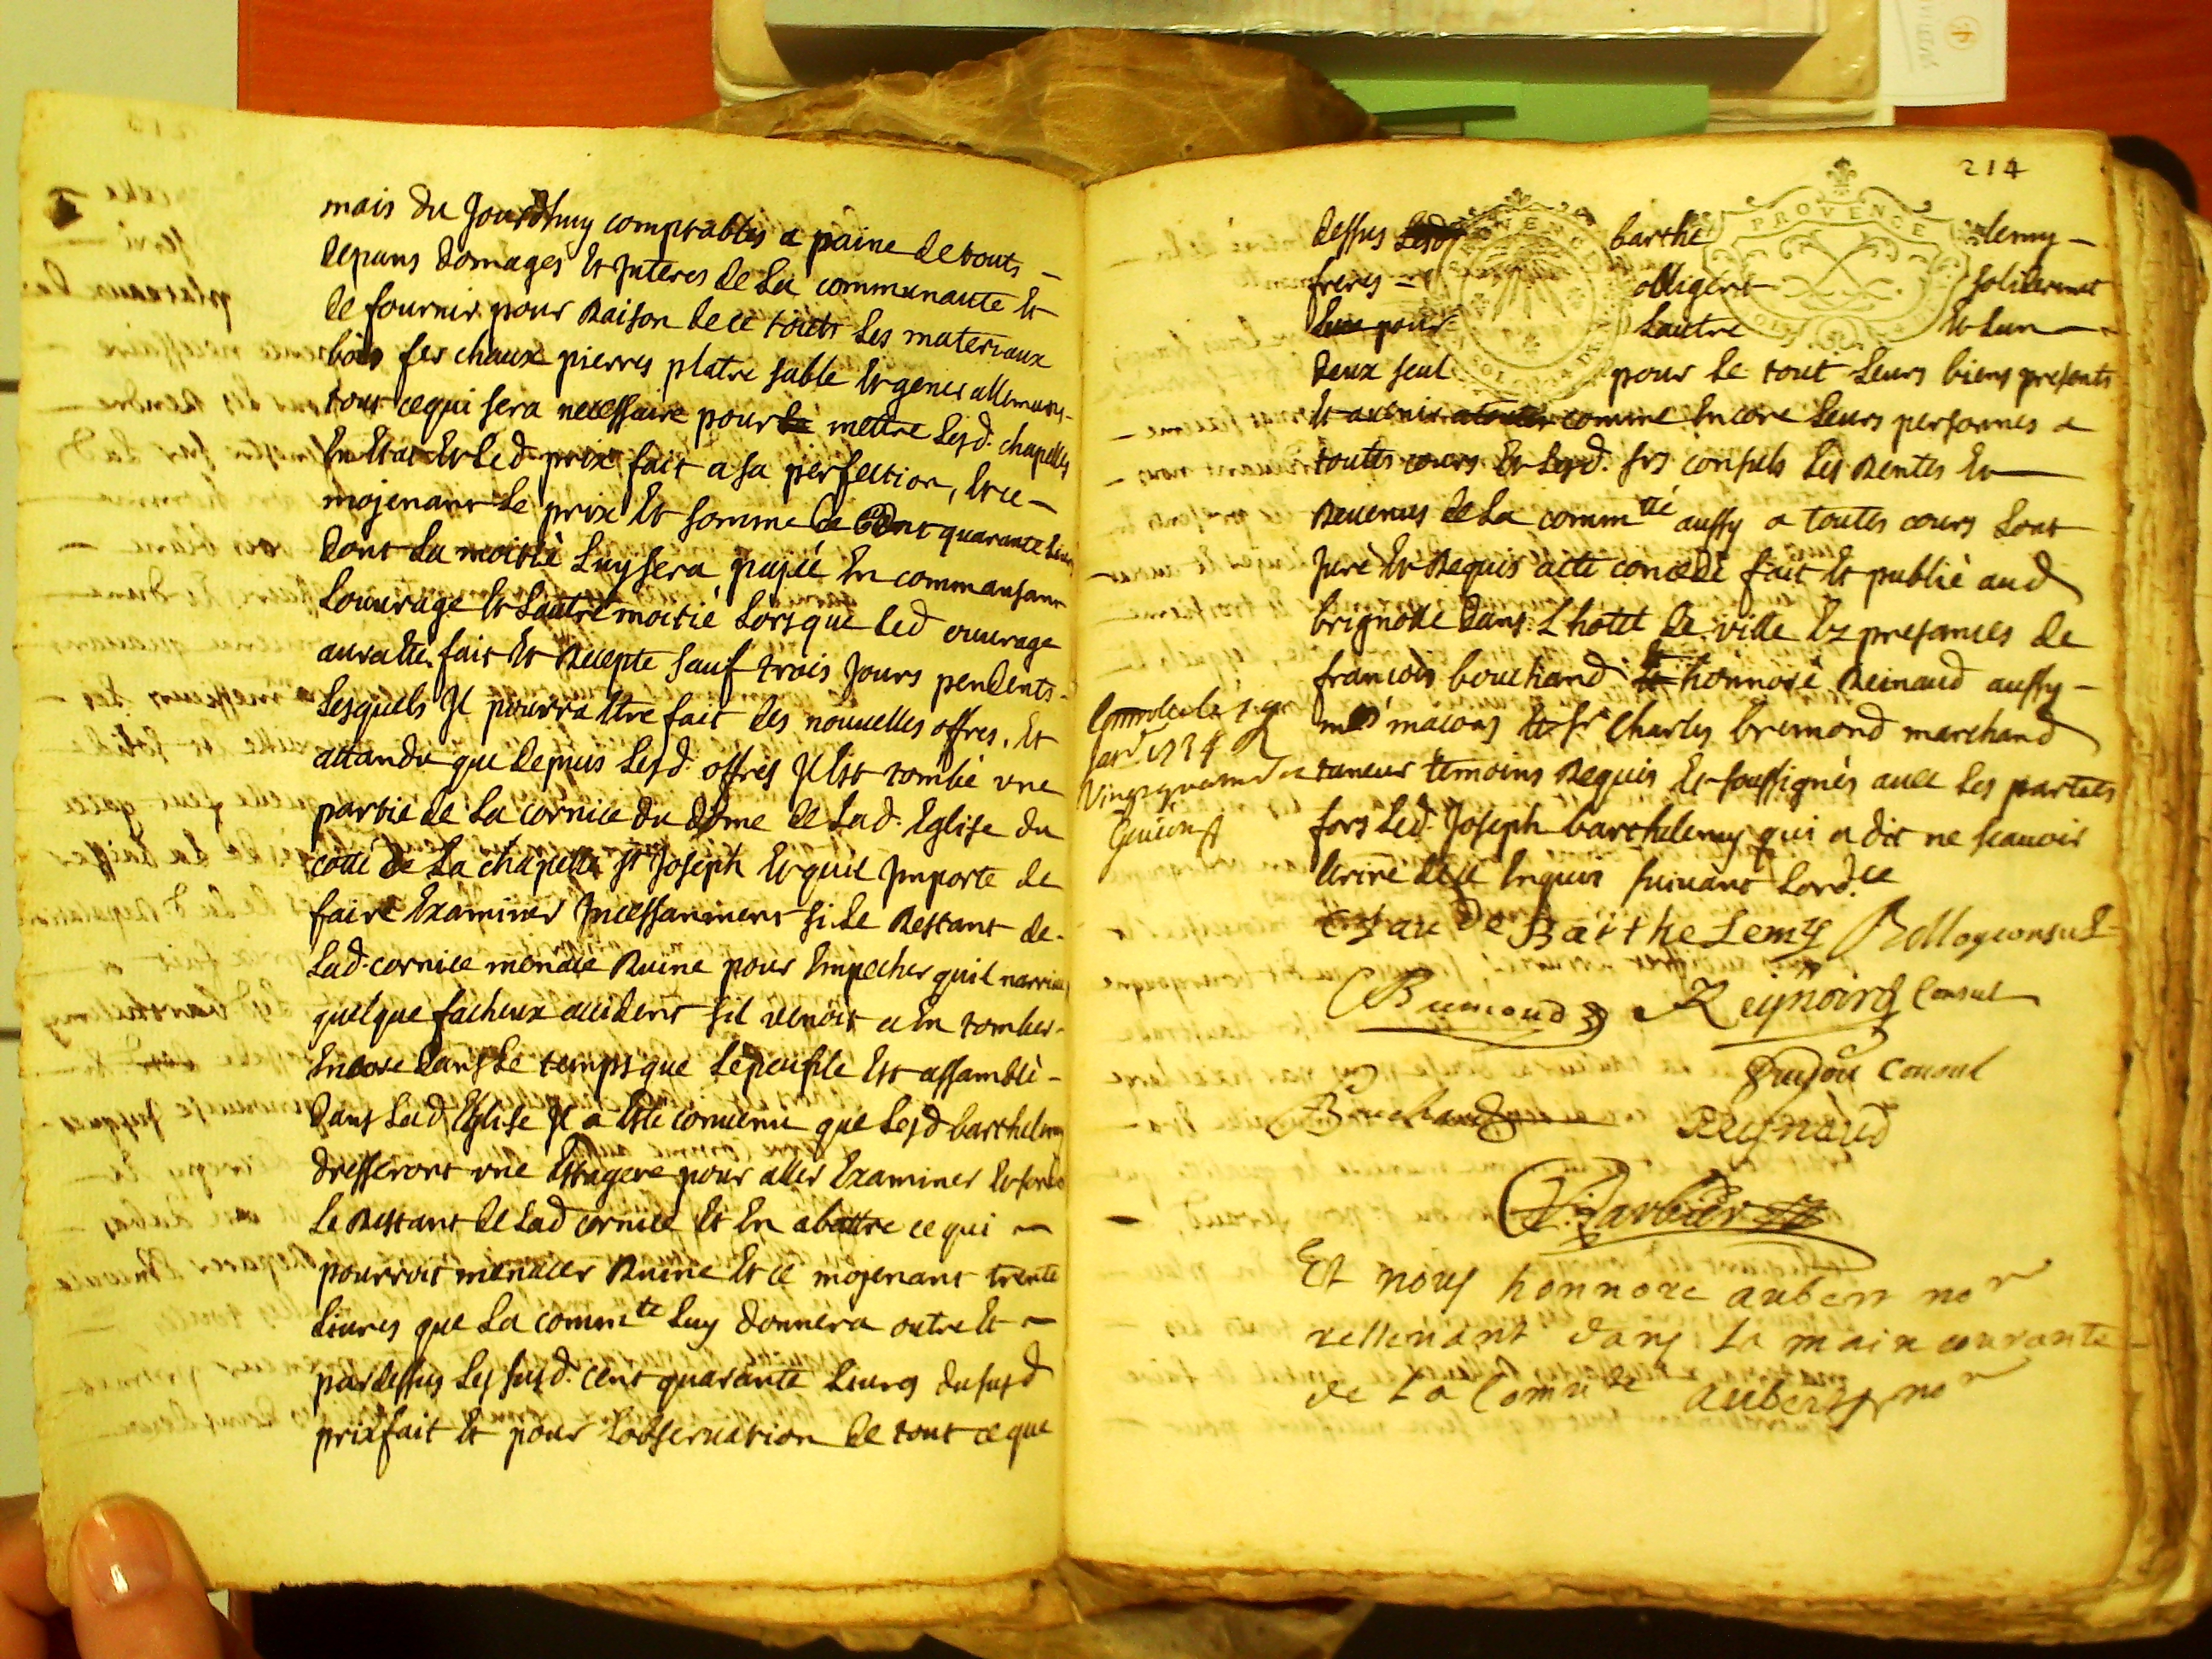 mais du Jourdhuy comptables a paine de touts
depans domages et Jnteres de La communaute et
de fournir pour Raison de ce touts Les materiaux
bois fer chaux pierres platre sable et
tout cequi sera necessaire pour mettre Lesd. chapelles
En Etat et Led. prix fait a sa perfection, et ce
mojenant Le prix et somme de Cent quarante Livres
dont La moitié Luy sera pajée En commansant
Louurage et Lautre moitié Lorsque Led ouurage
aura Ete fait et Recepte sauf trois Jours pendents
Lesquels Jl pourra Etre fait des nouuelles offres, et
attandu que depuis Lesd. offres Jl Est tombé vne
partie de La cornice du dome de Lad. Eglise du
coté de La chapelle st Joseph et quil Jmporte de
faire Examiner Jncessanment si Le Restant de
Lad. cornice menace Ruine pour Empecher quil narriue
quelque facheux accident sil venoit a En tomber
Encore dans Le temps que Le peuple Est assamblé
dans Lad Eglise Jl a Esté conuenu que Lesd barthelemy
dresseront vne Estagere pour aller Examiner
Le Restant de Lad cornice et En abattre ce qui
pourroit menacer Ruine et ce mojenant trente
Liures que La commte Luy donnera outre et
pardessus Les susd. cent quarante Liures du susd
prixfait et pour Lobseruation de tout ce que
214
PROVENCE
dessus barthelemy
freres obligent solidermet
Lun pour Lautre et Lun
deux seul pour Le tout Leurs biens presents
et auenir comme Encore Leurs personnes a
toutes cours et Lesd. srs consuls Les Rentes et
Reuenus de La commté aussy a toutes cours Lont
Juré et Requis acte concedé fait et publié aud
brignolle dans Lhotel de ville Ez presances de
francois bouchard et honnoré Reinaud aussy
mes macons et sr Charles bremond marchand
taneur temoins Requis et soussignés auec Les parties
fors Led. Joseph barthelemy qui a dit ne scauoir
Ecrire de ce Enquis suiuant Lordce
1734
Barthelemy Bellog consul
Bremond Reynoird Consul
Consul
Bouchard Reynaud
Barbier
Et nous honnore aubert nore
rettenant dans La main courante
de La Commté aubert nore